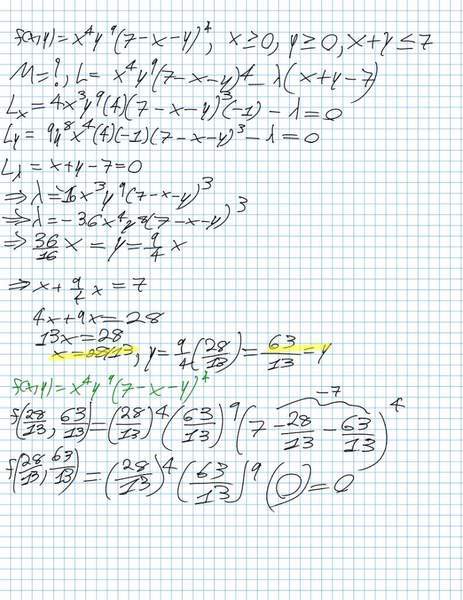 f(x,y) = x⁴y⁹(7-x-y)⁴, x≥0, y≥0, x+y≤7
M=?, L= x⁴y⁹(7-x-y)4 - λ(x+y-7)
Lx = 4x³y⁹(4)(7-x-y)³(-1) - λ=0
Ly = 9y⁸x⁴(4)(-1)(7-x-y)³ - λ=0
Lλ = x+y-7=0
⇒ λ = -16x³y⁹(7-x-y)³
⇒ λ = -36x⁴y⁸(7-x-y)³
⇒ 36/16 x = y = 9/4 x
⇒ x + 9/4 x = 7
4x+9x=28
13x=28
x=28/13, y= 9/4 (28/13) = 63/13 = y
f(x,y)= x⁴y⁹(7-x-y)⁴
-7
f(28/13, 63/13) = (28/13)⁴ (63/13)⁹ (7 - 28/13 - 63/13)⁴
f(28/13, 63/13) = (28/13)⁴ (63/13)⁹ (0) = 0